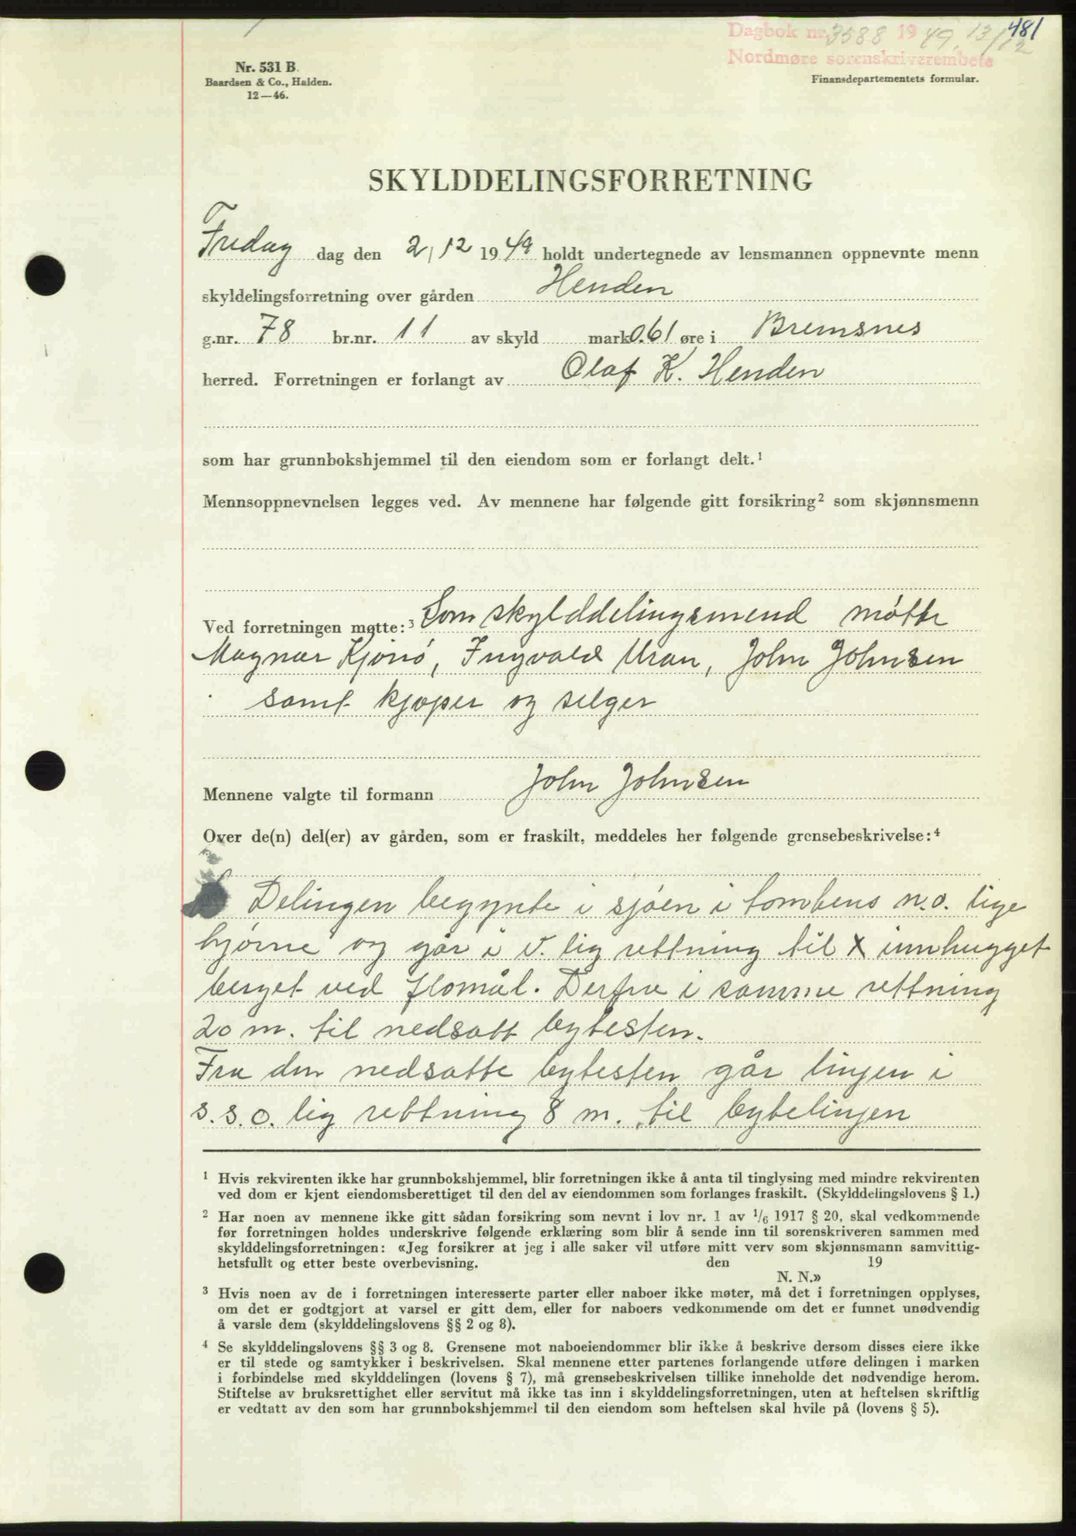 481
Dagbok nr. 3588 1949. 13/12
Nordmøre sorenskriverembete
Nr. 531 B.
Baardsen & Co., Halden.
12—46.
Finansdepartementets formular.
SKYLDDELINGSFORRETNING
Fredag dag den 2/12 1949 holdt undertegnede av lensmannen oppnevnte menn
skyldelingsforretning over gården Henden
g.nr. 78 br.nr. 11 av skyld mark 0.61 øre i Bremsnes
herred. Forretningen er forlangt av Olaf K. Henden
som har grunnbokshjemmel til den eiendom som er forlangt delt.¹
Mennsoppnevnelsen legges ved. Av mennene har følgende gitt forsikring² som skjønnsmenn
Ved forretningen møtte:³ Som skylddelingsmend møtte
Magnar Kjønø, Ingvald Uran, John Johnsen
samt kjøper og selger
Mennene valgte til formann John Johnsen
Over de(n) del(er) av gården, som er fraskilt, meddeles her følgende grensebeskrivelse:⁴
Delingen begynte i sjøen i tomtens n.o. lige
hjørne og går i v. lig rettning til x innhugget
berget ved flomål. Derfra i samme rettning
20 m. til nedsatt bytesten.
Fra den nedsatte bytesten går linjen i
s.s.o. lig rettning 8 m. til bytelinjen
¹ Hvis rekvirenten ikke har grunnbokshjemmel, blir forretningen ikke å anta til tinglysing med mindre rekvirenten
ved dom er kjent eiendomsberettiget til den del av eiendommen som forlanges fraskilt. (Skylddelingslovens § 1.)
² Har noen av mennene ikke gitt sådan forsikring som nevnt i lov nr. 1 av 1/6 1917 § 20, skal vedkommende
før forretningen holdes underskrive følgende erklæring som blir å sende inn til sorenskriveren sammen med
skylddelingsforretningen: «Jeg forsikrer at jeg i alle saker vil utføre mitt verv som skjønnsmann samvittig-
hetsfullt og etter beste overbevisning. den 19
N. N.»
³ Hvis noen av de i forretningen interesserte parter eller naboer ikke møter, må det i forretningen opplyses,
om det er godtgjort at varsel er gitt dem, eller for naboers vedkommende om det er funnet unødvendig
å varsle dem (skylddelingslovens §§ 2 og 8).
⁴ Se skylddelingslovens §§ 3 og 8. Grensene mot naboeiendommer blir ikke å beskrive dersom disses eiere ikke
er til stede og samtykker i beskrivelsen. Skal mennene etter partenes forlangende utføre delingen i marken
i forbindelse med skylddelingen (lovens § 7), må grensebeskrivelsen tillike inneholde det nødvendige herom.
Stiftelse av bruksrettighet eller servitut må ikke tas inn i skylddelingsforretningen, uten at heftelsen skriftlig
er vedtatt av den som har grunnbokshjemmel til den eiendom som heftelsen skal hvile på (lovens § 5).